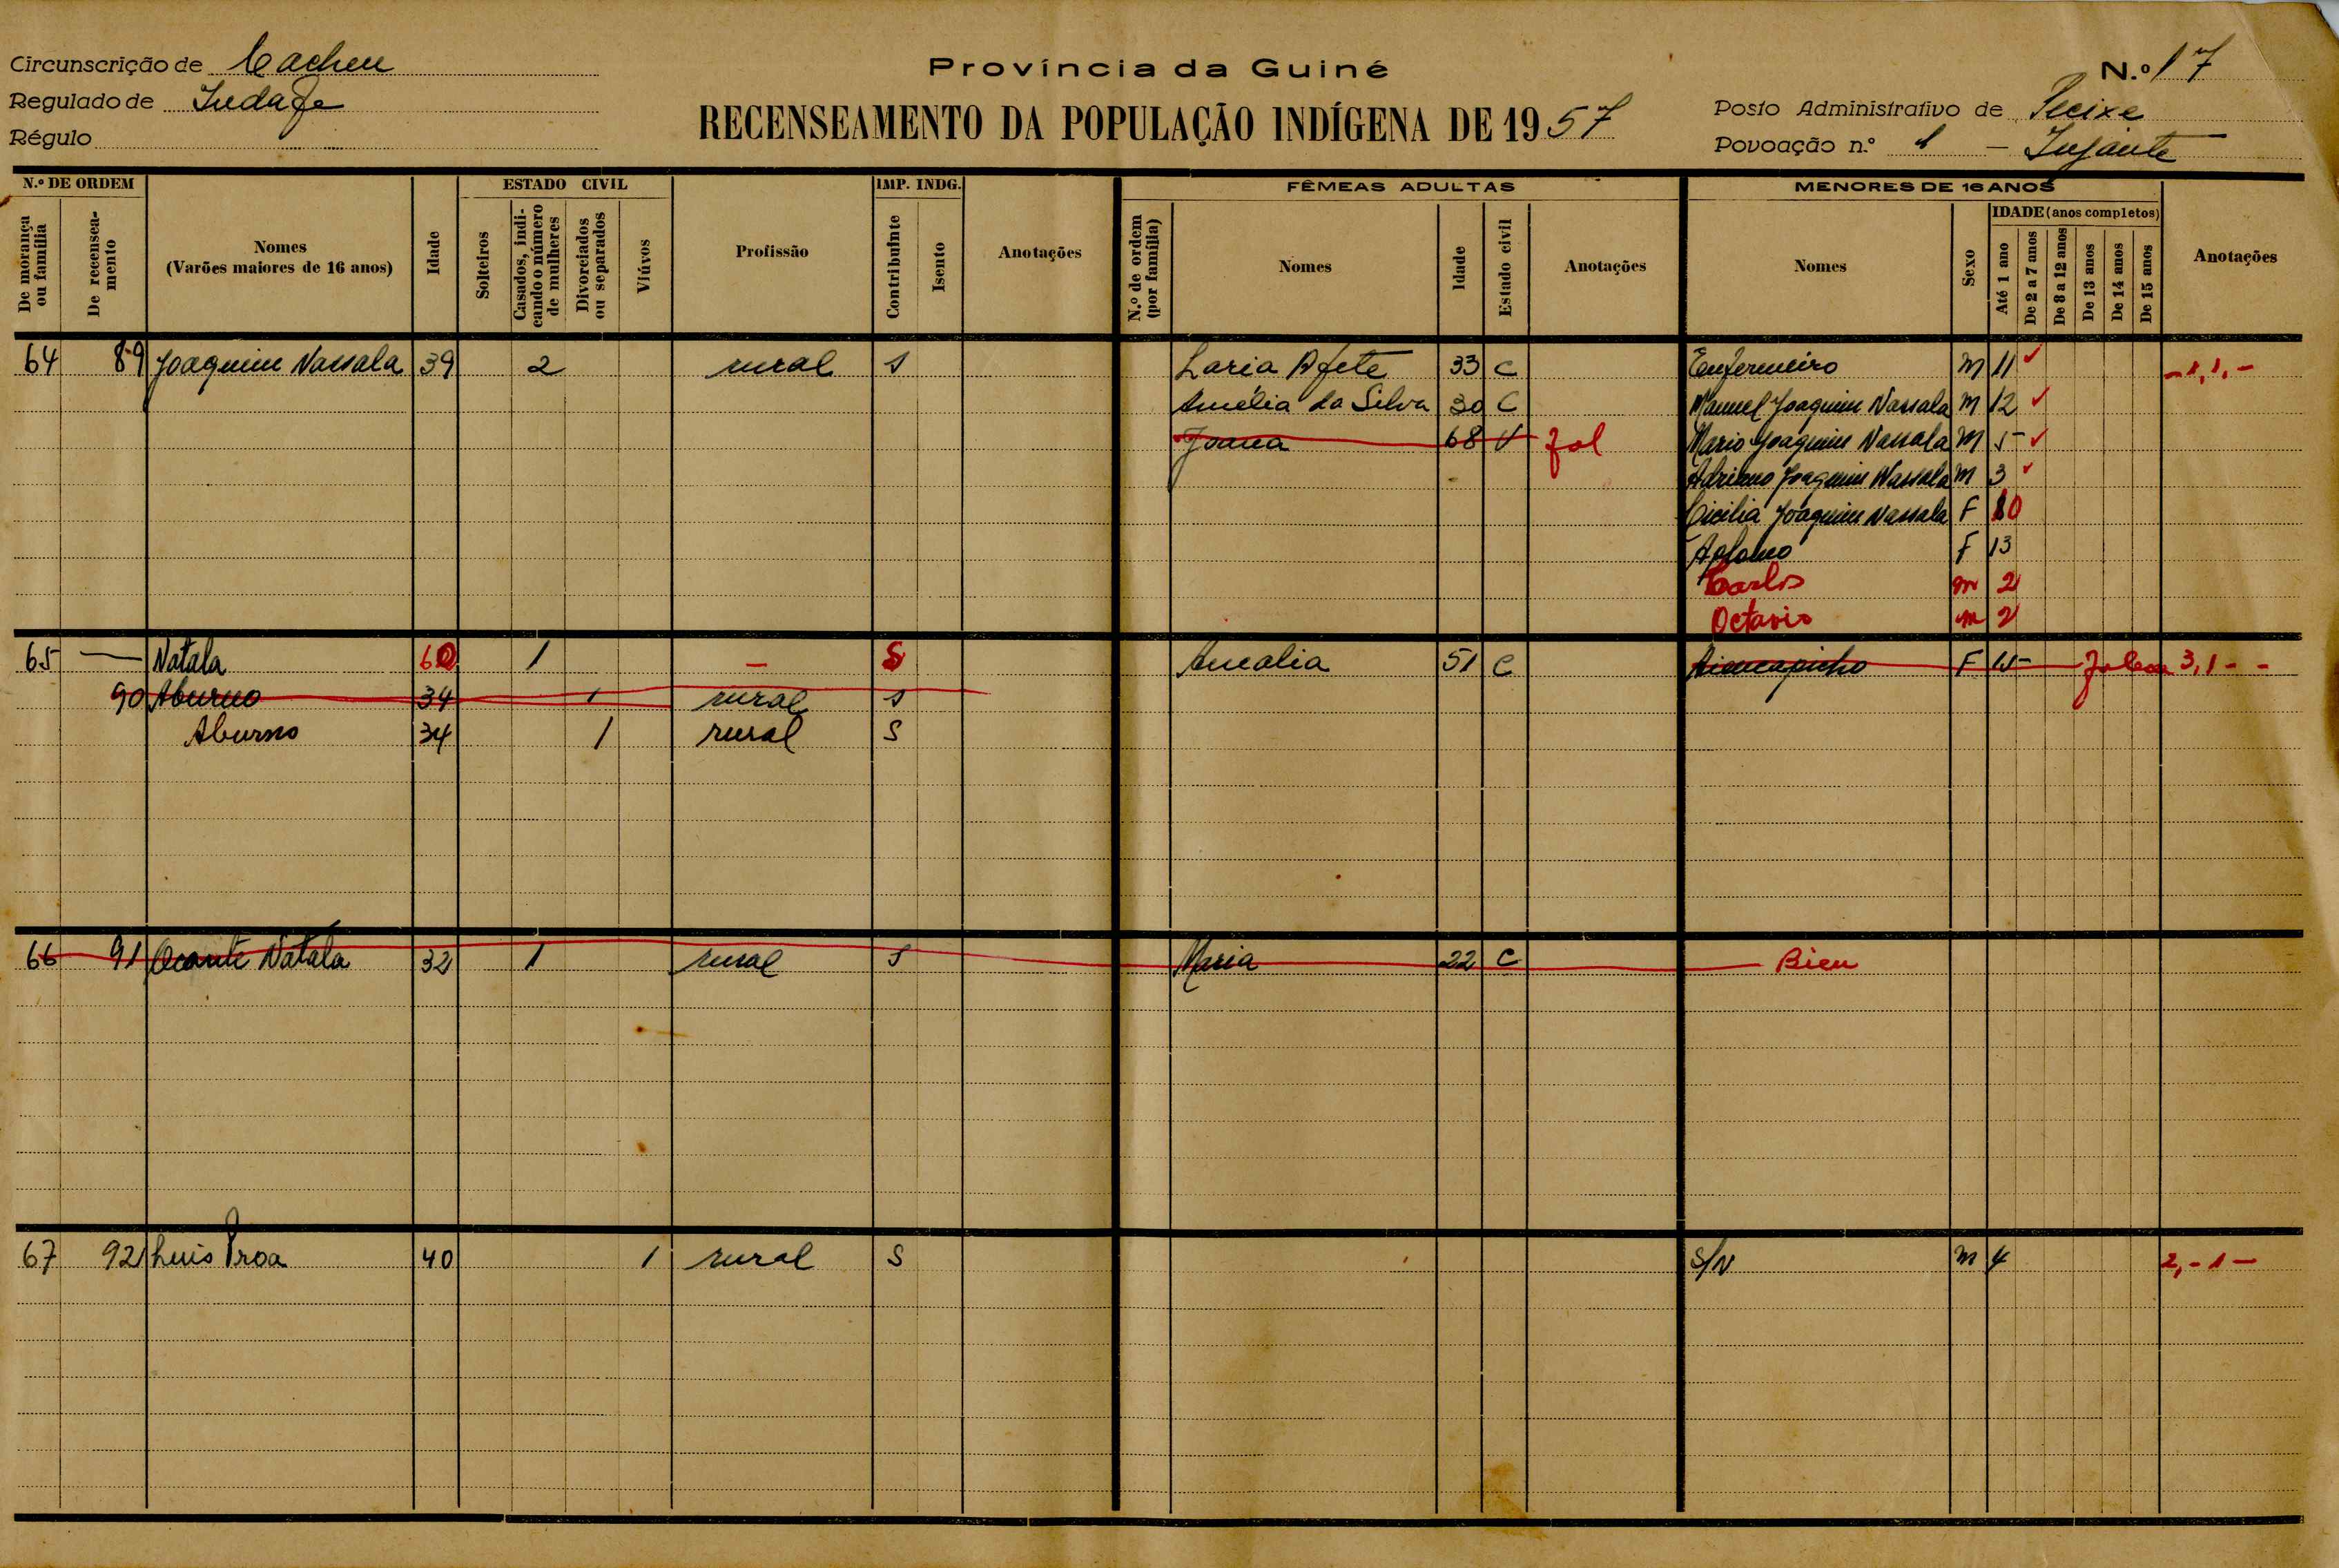 Província da Guiné
Circunscrição de Cacheu
N.º 17
Regulado de
Régulo
RECENSEAMENTO DA POPULAÇÃO INDÍGENA DE 1957
Posto Administrativo de Pecixe
Povoação n.º 1 -
N.º DE ORDEM
De morança ou família
De recensea-mento
Nomes
(Varões maiores de 16 anos)
Idade
ESTADO CIVIL
Solteiros
Casados, indi-cando o número de mulheres
Divorciados ou separados
Viúvos
Profissão
IMP. INDG.
Contribuinte
Isento
Anotações
FÊMEAS ADULTAS
N.º de ordem (por família)
Nomes
Idade
Estado civil
Anotações
MENORES DE 16 ANOS
Nomes
Sexo
IDADE (anos completos)
Até 1 ano
De 2 a 7 anos
De 8 a 12 anos
De 13 anos
De 14 anos
De 15 anos
Anotações
64 89 Joaquim Nassala 39 2 rural S Laria Afete 33 C Enfermeiro M 11 ✓ -1,1,-
Amélia da Silva 30 C Manuel Joaquim Nassala M 12 ✓
Joana 68 V Fal Mario Joaquim Nassala M 5 ✓
Adriano Joaquim Nassala M 3 ✓
Cicilia Joaquim Nassala F 10
F 13
Carlos m 2
Octavio m 2
65 — Natala 60 1 — S Amalia 51 C F 15 3,1--
90 Aburno 34 1 rural S
Aburno 34 1 rural S
66 91 Ocante Natala 32 1 rural S Maria 22 C
67 92 Luis Proa 40 1 rural S S/N M 4 2,-1-